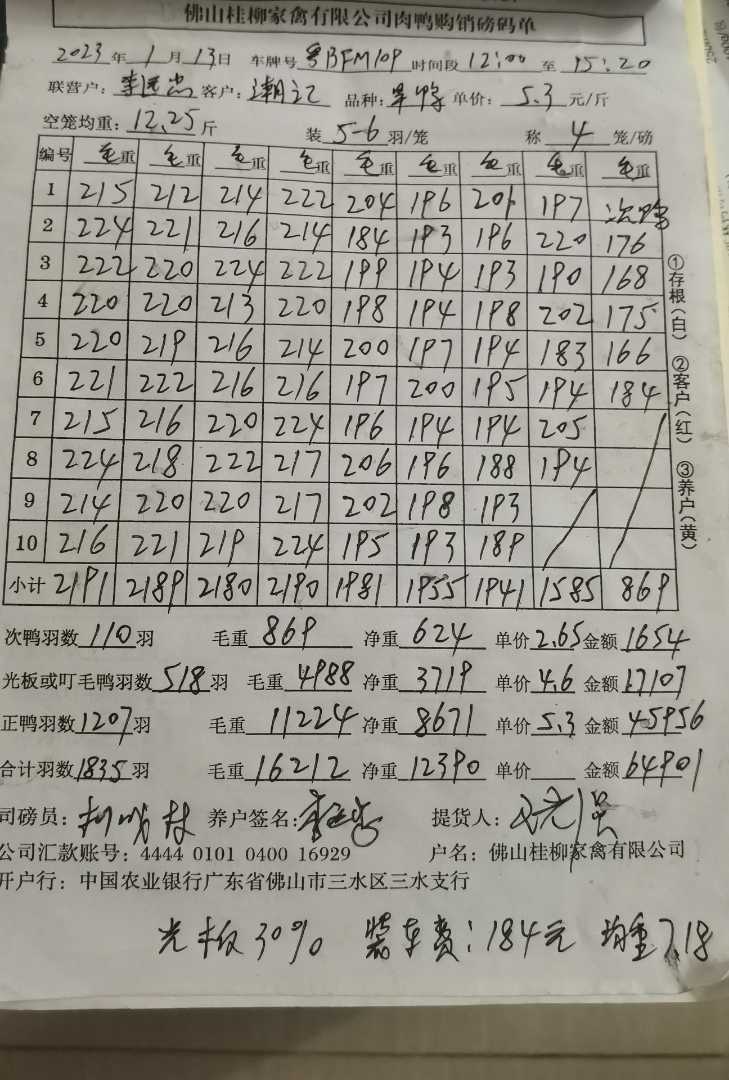 佛山桂柳家禽有限公司肉鸭购销磅码单
2023年1月13日 车牌号 粤BFM109 时间段 12:00 至 15:20
联营户: 客户: 潮记 品种: 单价: 5.3 元/斤
空笼均重: 12.25 斤 装 5-6 羽/笼 称 4 笼/磅
编号 毛重 毛重 毛重 毛重 毛重 毛重 毛重 毛重 毛重
1 215 212 214 222 204 196 201 197 次鸭
2 224 221 216 214 184 193 196 220 176
3 222 220 224 222 199 194 193 190 168
4 220 220 213 220 198 194 198 202 175
5 220 219 216 214 200 197 194 183 166
6 221 222 216 216 197 200 195 194 184
7 215 216 220 224 196 194 194 205
8 224 218 222 217 206 196 188 194
9 214 220 220 217 202 198 193
10 216 221 219 224 195 193 189
小计 2191 2189 2180 2190 1981 1955 1941 1585 869
①存根(白) ②客户(红) ③养户(黄)
次鸭羽数 110 羽 毛重 869 净重 624 单价 2.65 金额 1654
光板或叮毛鸭羽数 518 羽 毛重 4988 净重 3719 单价 4.6 金额 17107
正鸭羽数 1207 羽 毛重 11224 净重 8671 单价 5.3 金额 45956
合计羽数 1835 羽 毛重 16212 净重 12390 单价 金额 64901
司磅员: 养户签名: 提货人:
公司汇款账号: 4444 0101 0400 16929 户名: 佛山桂柳家禽有限公司
开户行: 中国农业银行广东省佛山市三水区三水支行
光板30% 装车费: 184元 均重7.18